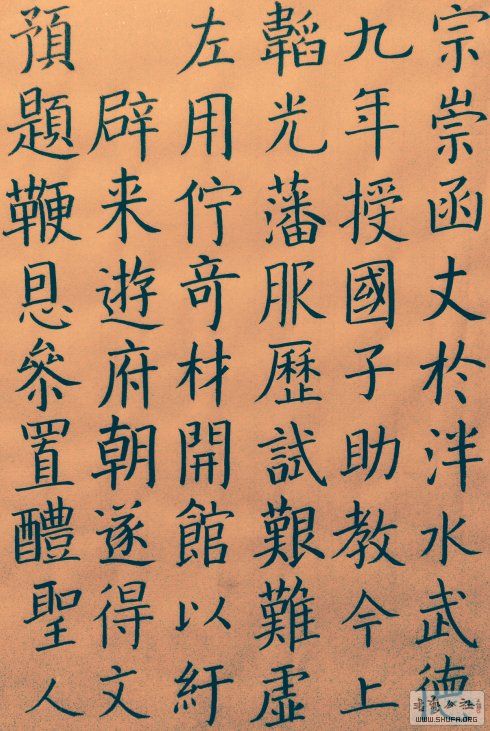 宗崇函丈於泮水武德
九年授國子助教今上
韜光藩服歷試艱難虛
左用佇竒材開館以紆
辟来遊府朝遂得文
預題鞭恳叅置醴聖人
WWW.SHUFA.ORG